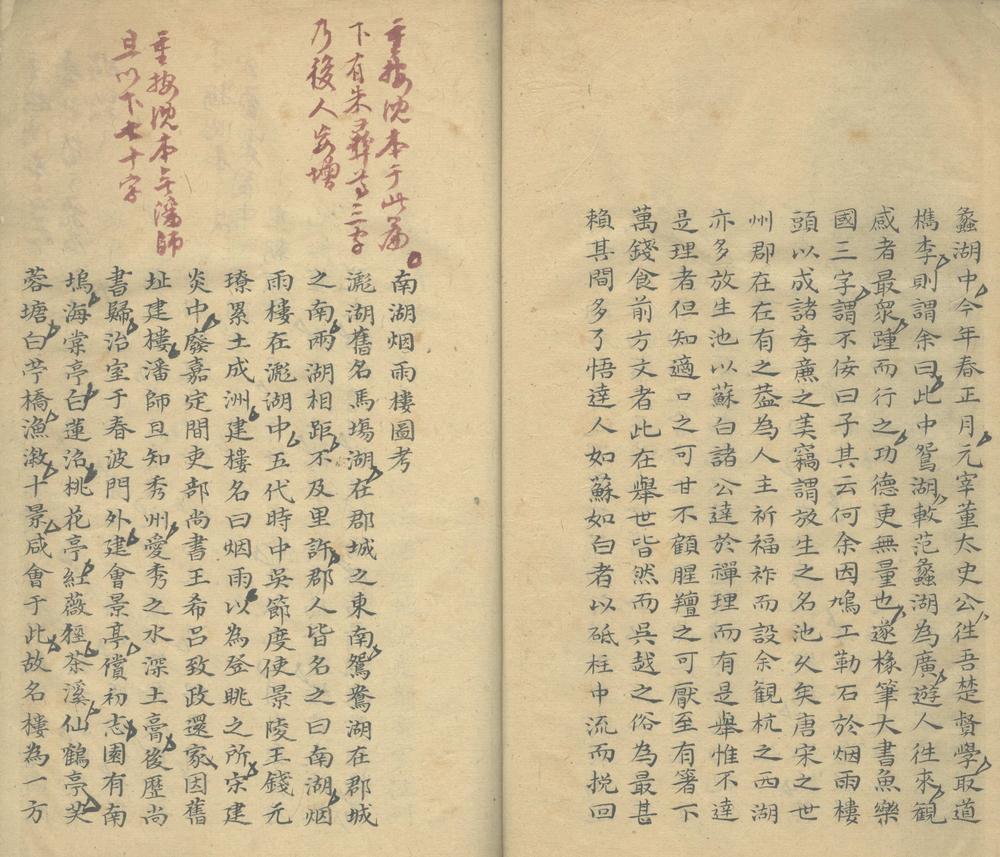 蠡湖中今年春正月元宰董太史公徃吾楚贒學取道
檇李則謂余曰此中鴛湖較范蠡湖為廣遊人徃來觀
感者最衆踵而行之功德更無量也遂椽筆大書魚樂
國三字謂不侫曰子其云何余因鳩工勒石於烟雨樓
頭以成諸孝廉之美竊謂放生之名池乆矣唐宋之世
州郡在在有之葢為人主祈福祚而設余観杭之西湖
亦多放生池以蘇白諸公達於禪理而有是舉惟不達
是理者但知適口之可甘不顧腥羶之可厭至有箸下
萬錢食前方丈者此在舉世皆然而吳越之俗為最甚
賴其間多了悟達人如蘇如白者以砥柱中流而挽回
重按沈本于此篇
下有朱彛尊三字
乃後人妄增
南湖烟雨樓圖考
滮湖舊名馬塲湖在郡城之東南鴛鴦湖在郡城
之南兩湖相距不及里許郡人皆名之曰南湖烟
雨樓在滮湖中五代時中吳節度使景陵王錢元
璙累土成洲建樓名曰烟雨以為登眺之所宋建
炎中廢嘉定間吏部尚書王希呂致政還家因舊
重按沈本無潘師
旦以下七十字
址建樓潘師旦知秀州愛秀之水深土膏後歷尚
書歸治室于春波門外建會景亭償初志園有南
塢海棠亭白蓮沼桃花亭紅薇徑茶溪仙鶴亭芙
蓉塘白苧橋漁漵十景咸會于此故名樓為一方